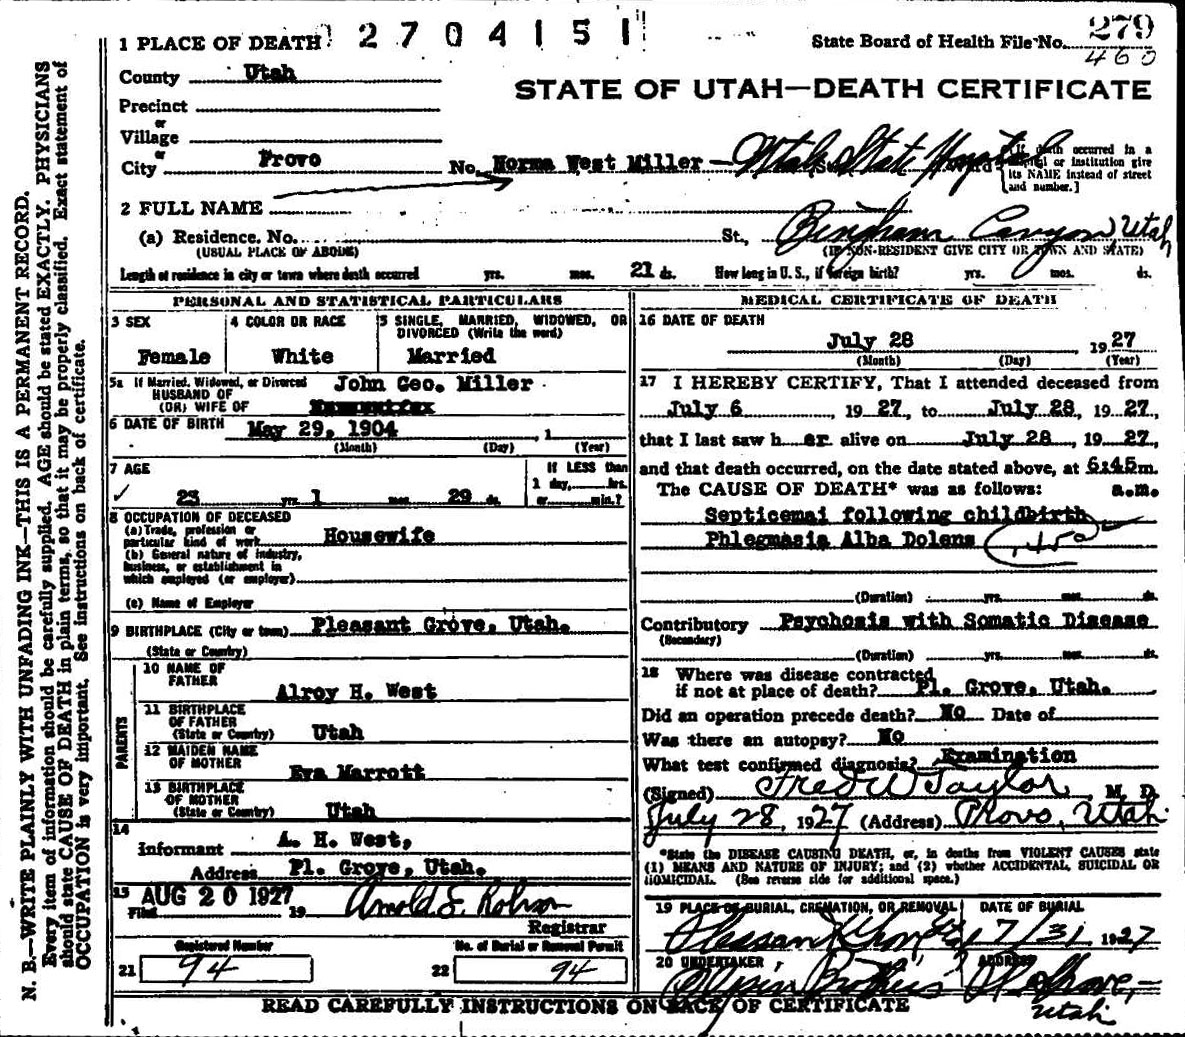 2704151
279
1 PLACE OF DEATH State Board of Health File No.
460
County Utah
STATE OF UTAH—DEATH CERTIFICATE
Precinct
or
Village
or
City Provo No. Norma West Miller — Utah State Hospital [If death occurred in a
hospital or institution give
its NAME instead of street
and number.]
2 FULL NAME
(a) Residence. No. St., Bingham Canyon, Utah
(USUAL PLACE OF ABODE) (IF NON-RESIDENT GIVE CITY OR TOWN AND STATE)
Length of residence in city or town where death occurred yrs. mos. 21 ds. How long in U. S., if foreign birth? yrs. mos. ds.
PERSONAL AND STATISTICAL PARTICULARS
3 SEX 4 COLOR OR RACE 5 SINGLE, MARRIED, WIDOWED, OR
DIVORCED (Write the word)
Female White Married
5a If Married, Widowed, or Divorced John Geo. Miller
HUSBAND OF
(OR) WIFE OF
6 DATE OF BIRTH May 29, 1904 , 1
(Month) (Day) (Year)
7 AGE If LESS than
1 day, hrs.
23 yrs. 1 mos. 29 ds. or min.?
8 OCCUPATION OF DECEASED
(a) Trade, profession or
particular kind of work Housewife
(b) General nature of industry,
business, or establishment in
which employed (or employer)
(c) Name of Employer
9 BIRTHPLACE (City or town) Pleasant Grove, Utah.
(State or Country)
PARENTS
10 NAME OF
FATHER Alroy H. West
11 BIRTHPLACE
OF FATHER
(State or Country) Utah
12 MAIDEN NAME
OF MOTHER Eva Marrott
13 BIRTHPLACE
OF MOTHER
(State or Country) Utah
14
Informant A. H. West,
Address Pl. Grove, Utah.
15 AUG 20 1927
Filed 19 Arnold E. Robison
Registrar
Registered Number No. of Burial or Removal Permit
21 94 22 94
MEDICAL CERTIFICATE OF DEATH
16 DATE OF DEATH
July 28 1927
(Month) (Day) (Year)
17 I HEREBY CERTIFY, That I attended deceased from
July 6 1927, to July 28, 1927,
that I last saw h er alive on July 28, 1927,
and that death occurred, on the date stated above, at 6:45m.
The CAUSE OF DEATH* was as follows: a.m.
Septicemai following childbirth
Phlegmasia Alba Dolens
(Duration) yrs. mos. ds.
Contributory Psychosis with Somatic Disease
(Secondary)
(Duration) yrs. mos. ds.
18 Where was disease contracted
if not at place of death? Pl. Grove, Utah.
Did an operation precede death? No Date of
Was there an autopsy? No
What test confirmed diagnosis? Examination
(Signed) Fred W Taylor, M. D.
July 28, 1927 (Address) Provo, Utah
*State the DISEASE CAUSING DEATH, or, in deaths from VIOLENT CAUSES state
(1) MEANS AND NATURE OF INJURY; and (2) whether ACCIDENTAL, SUICIDAL OR
HOMICIDAL. (See reverse side for additional space.)
19 PLACE OF BURIAL, CREMATION, OR REMOVAL DATE OF BURIAL
Pleasant Grove 7/31 1927
20 UNDERTAKER ADDRESS
Brothers Pl Grove, Utah
READ CAREFULLY INSTRUCTIONS ON BACK OF CERTIFICATE
N. B.—WRITE PLAINLY WITH UNFADING INK—THIS IS A PERMANENT RECORD.
Every item of information should be carefully supplied. AGE should be stated EXACTLY. PHYSICIANS
should state CAUSE OF DEATH in plain terms, so that it may be properly classified. Exact statement of
OCCUPATION is very important. See instructions on back of certificate.